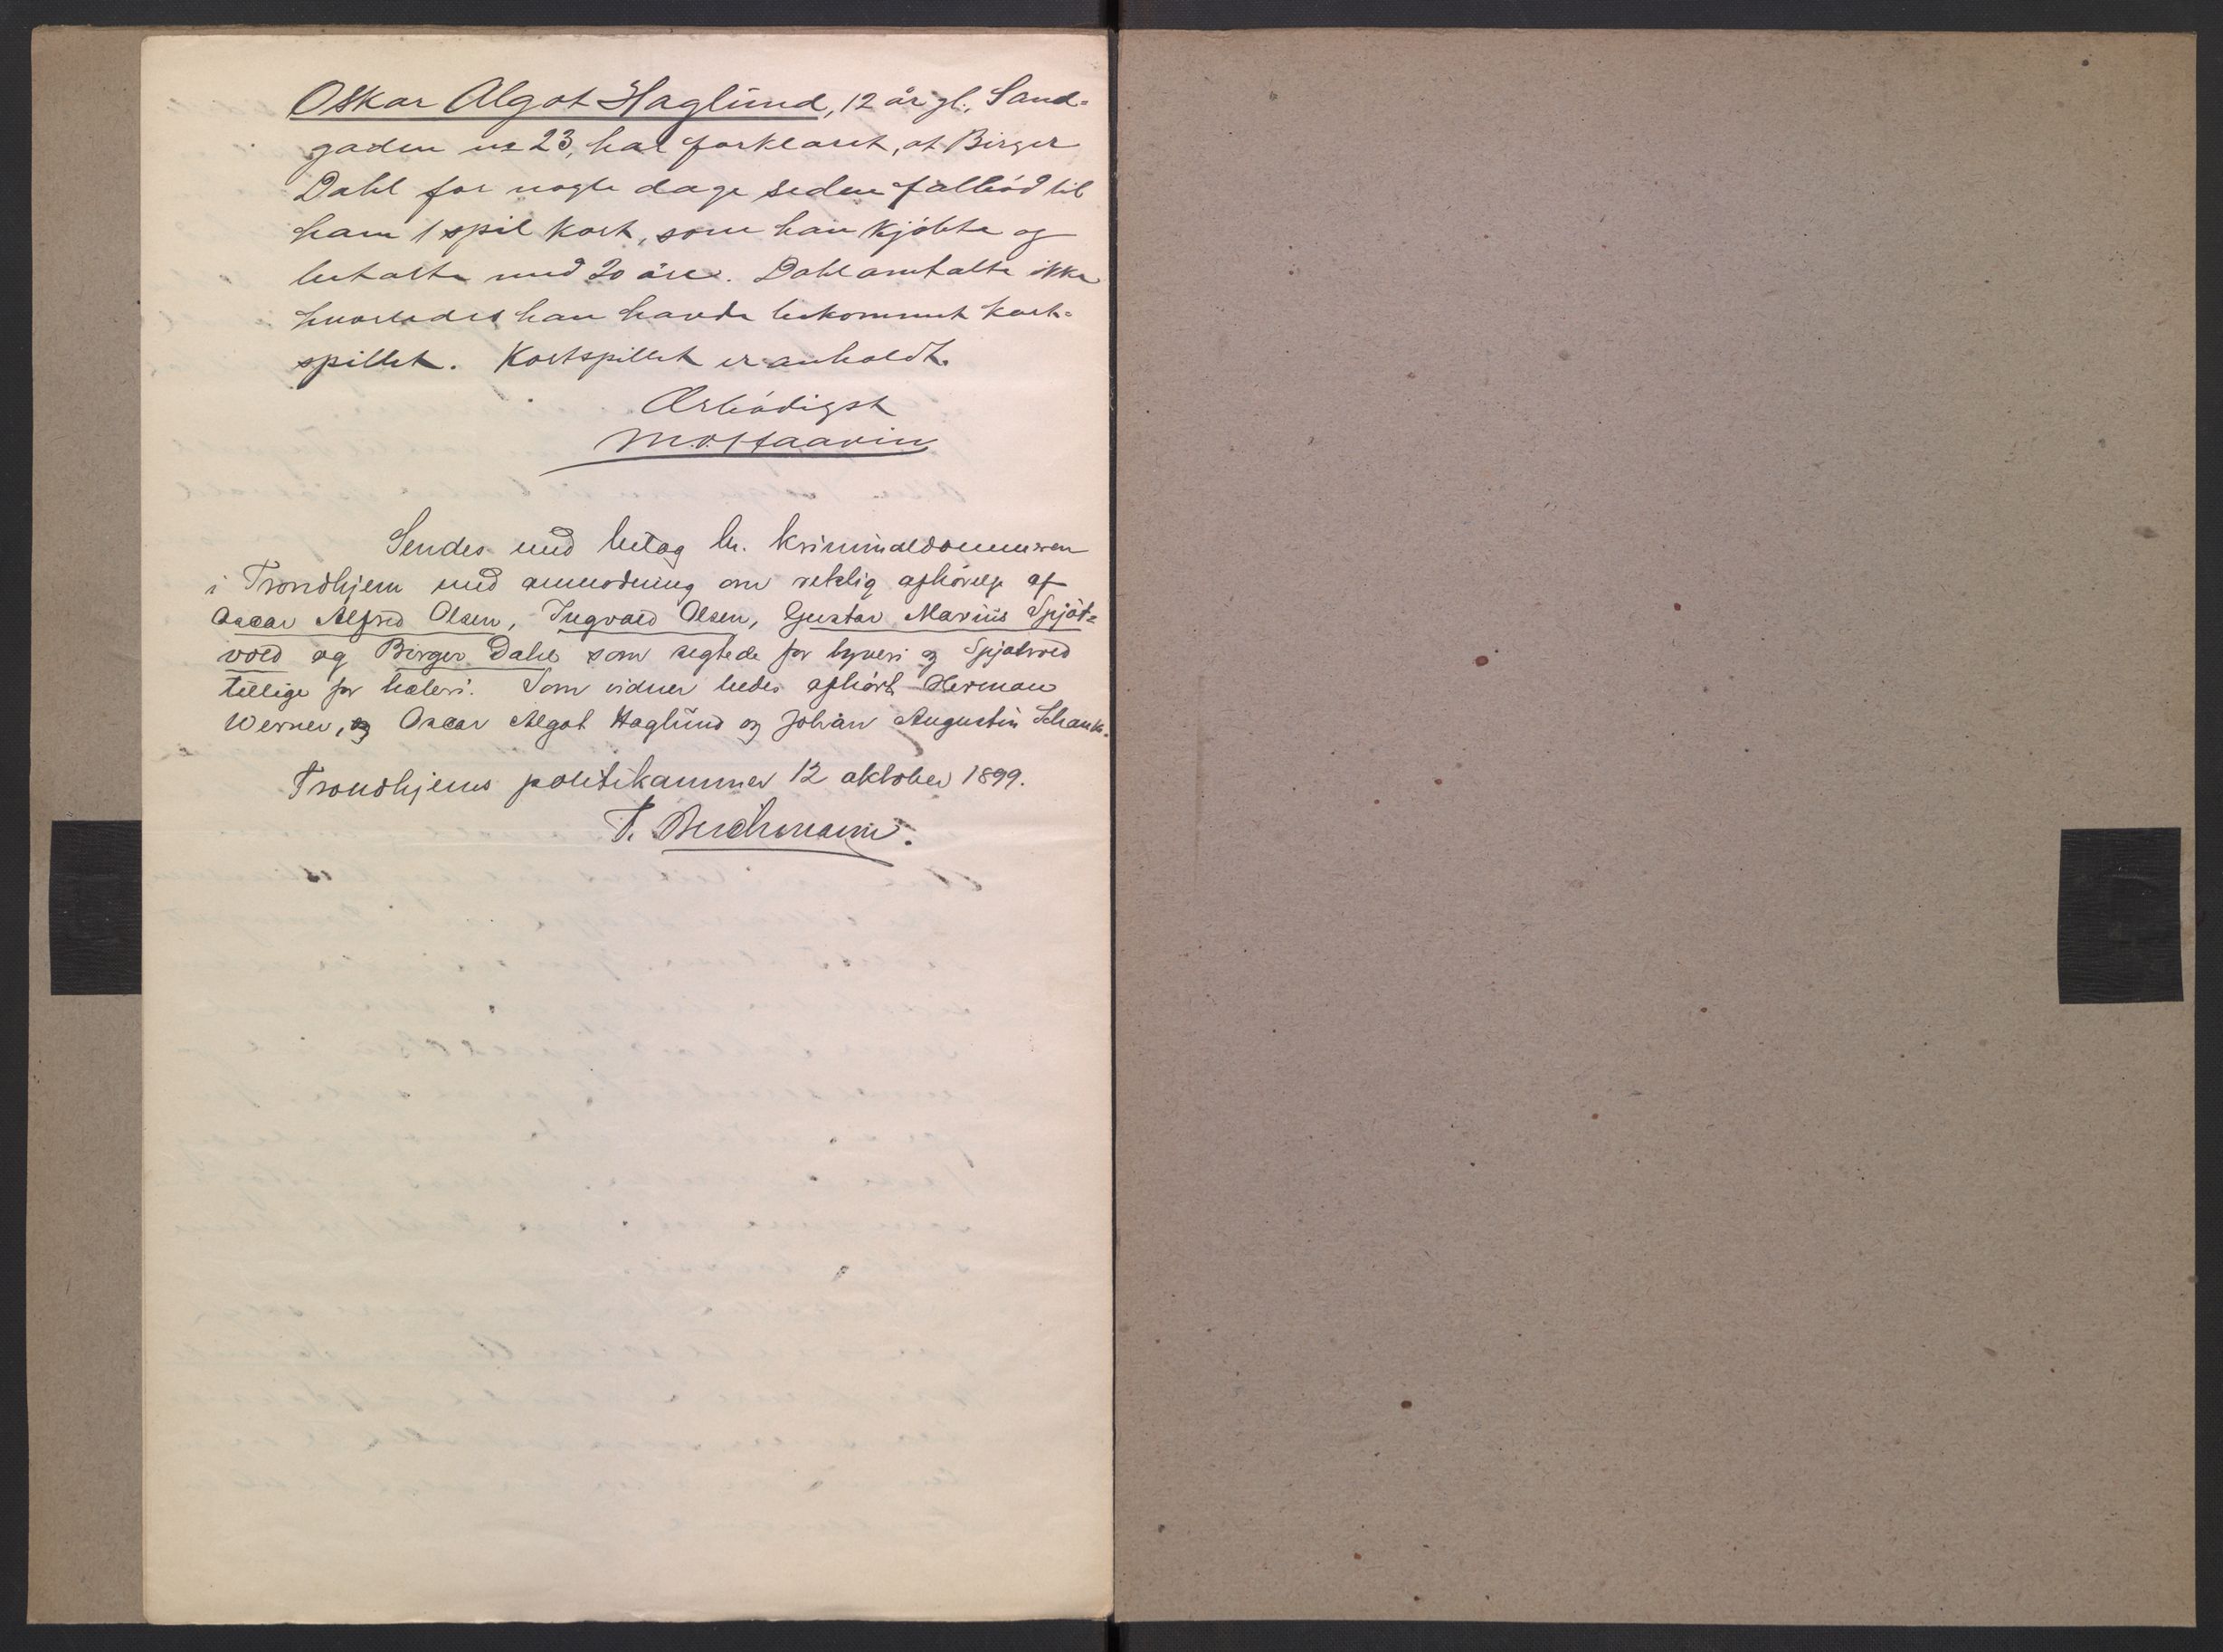 Oskar Algot Haglund, 12 år gl., Sand-
gaden no 23, har forklaret, at Birger
Dahl for nogle dage siden falbød til
ham 1 spil kort, som han kjöbte og
betalte med 20 öre. Dahl omtalte ikke
hvorledes han havde bekommet kort-
spillet. Kortspillet er anholdt.
Ærbödigst
M.O. Haavin
Sendes med bilag hr. kriminaldommeren
i Trondhjem med anmodning om retslig afhörelse af
Oscar Alfred Olsen, Ingvald Olsen, Gustav Marius Spjöt-
vold og Birger Dahl som sigtede for tyveri og Spjötvold
tillige for hæleri. Som vidner bedes afhört Herman
Werner, og Oscar Algot Haglund og Johan Augustin Schank.
Trondhjems politikammer 12 oktober 1899.
T.